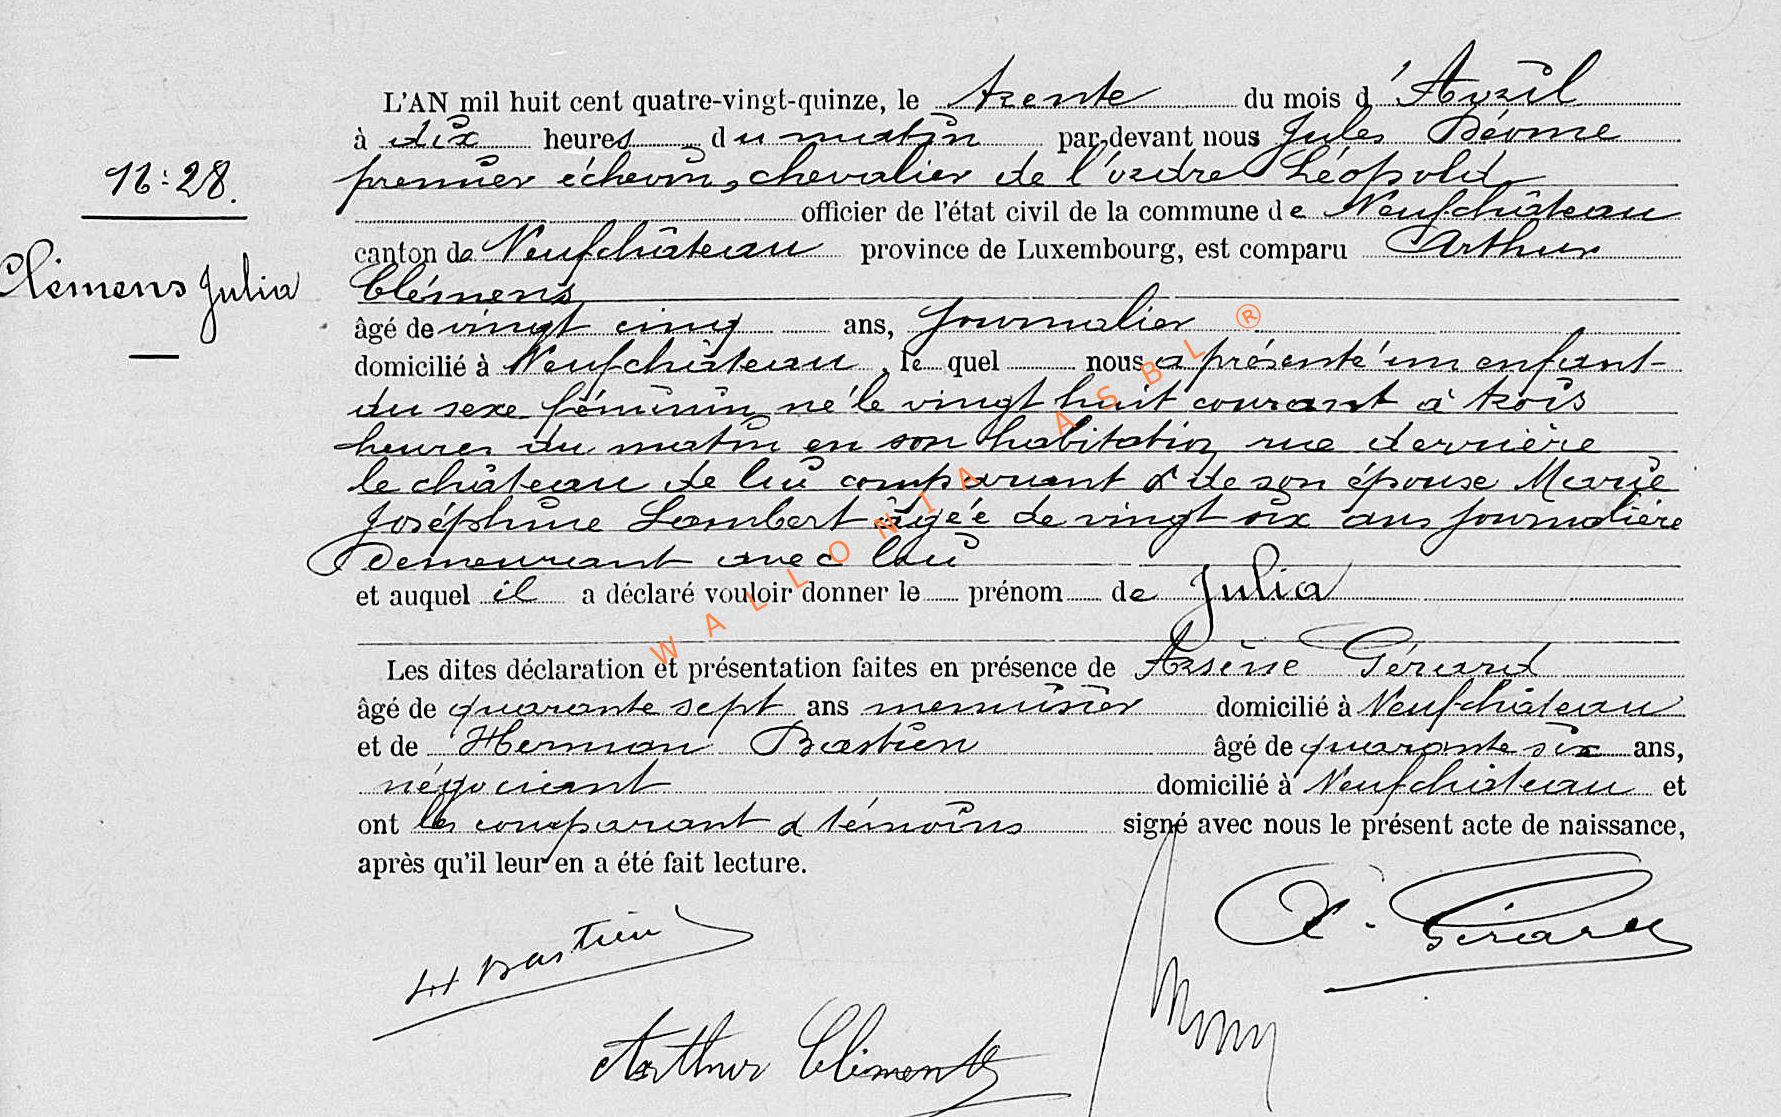 L'AN mil huit cent quatre-vingt-quinze, le trente du mois d'Avril
à dix heures du matin par-devant nous Jules Déome
premier échevin, chevalier de l'ordre Léopold
officier de l'état civil de la commune de Neufchâteau
canton de Neufchâteau province de Luxembourg, est comparu Arthur
Clémens
âgé de vingt cinq ans, journalier
domicilié à Neufchâteau, le quel nous a présenté un enfant
du sexe féminin, né le vingt huit courant à trois
heures du matin en son habitation rue derrière
le château de lui comparant & de son épouse Marie
Joséphine Lambert âgée de vingt six ans journalière
demeurant avec lui
et auquel il a déclaré vouloir donner le prénom de Julia
Les dites déclaration et présentation faites en présence de Arsène Gérard
âgé de quarante sept ans menuisier domicilié à Neufchâteau
et de Herman Bastien âgé de quarante six ans,
négociant domicilié à Neufchâteau et
ont les comparant & témoins signé avec nous le présent acte de naissance,
après qu'il leur en a été fait lecture.
16:28.
Clémens Julia
WALLONIA ASBL ®
H Bastien
A. Gérard
Arthur Clement